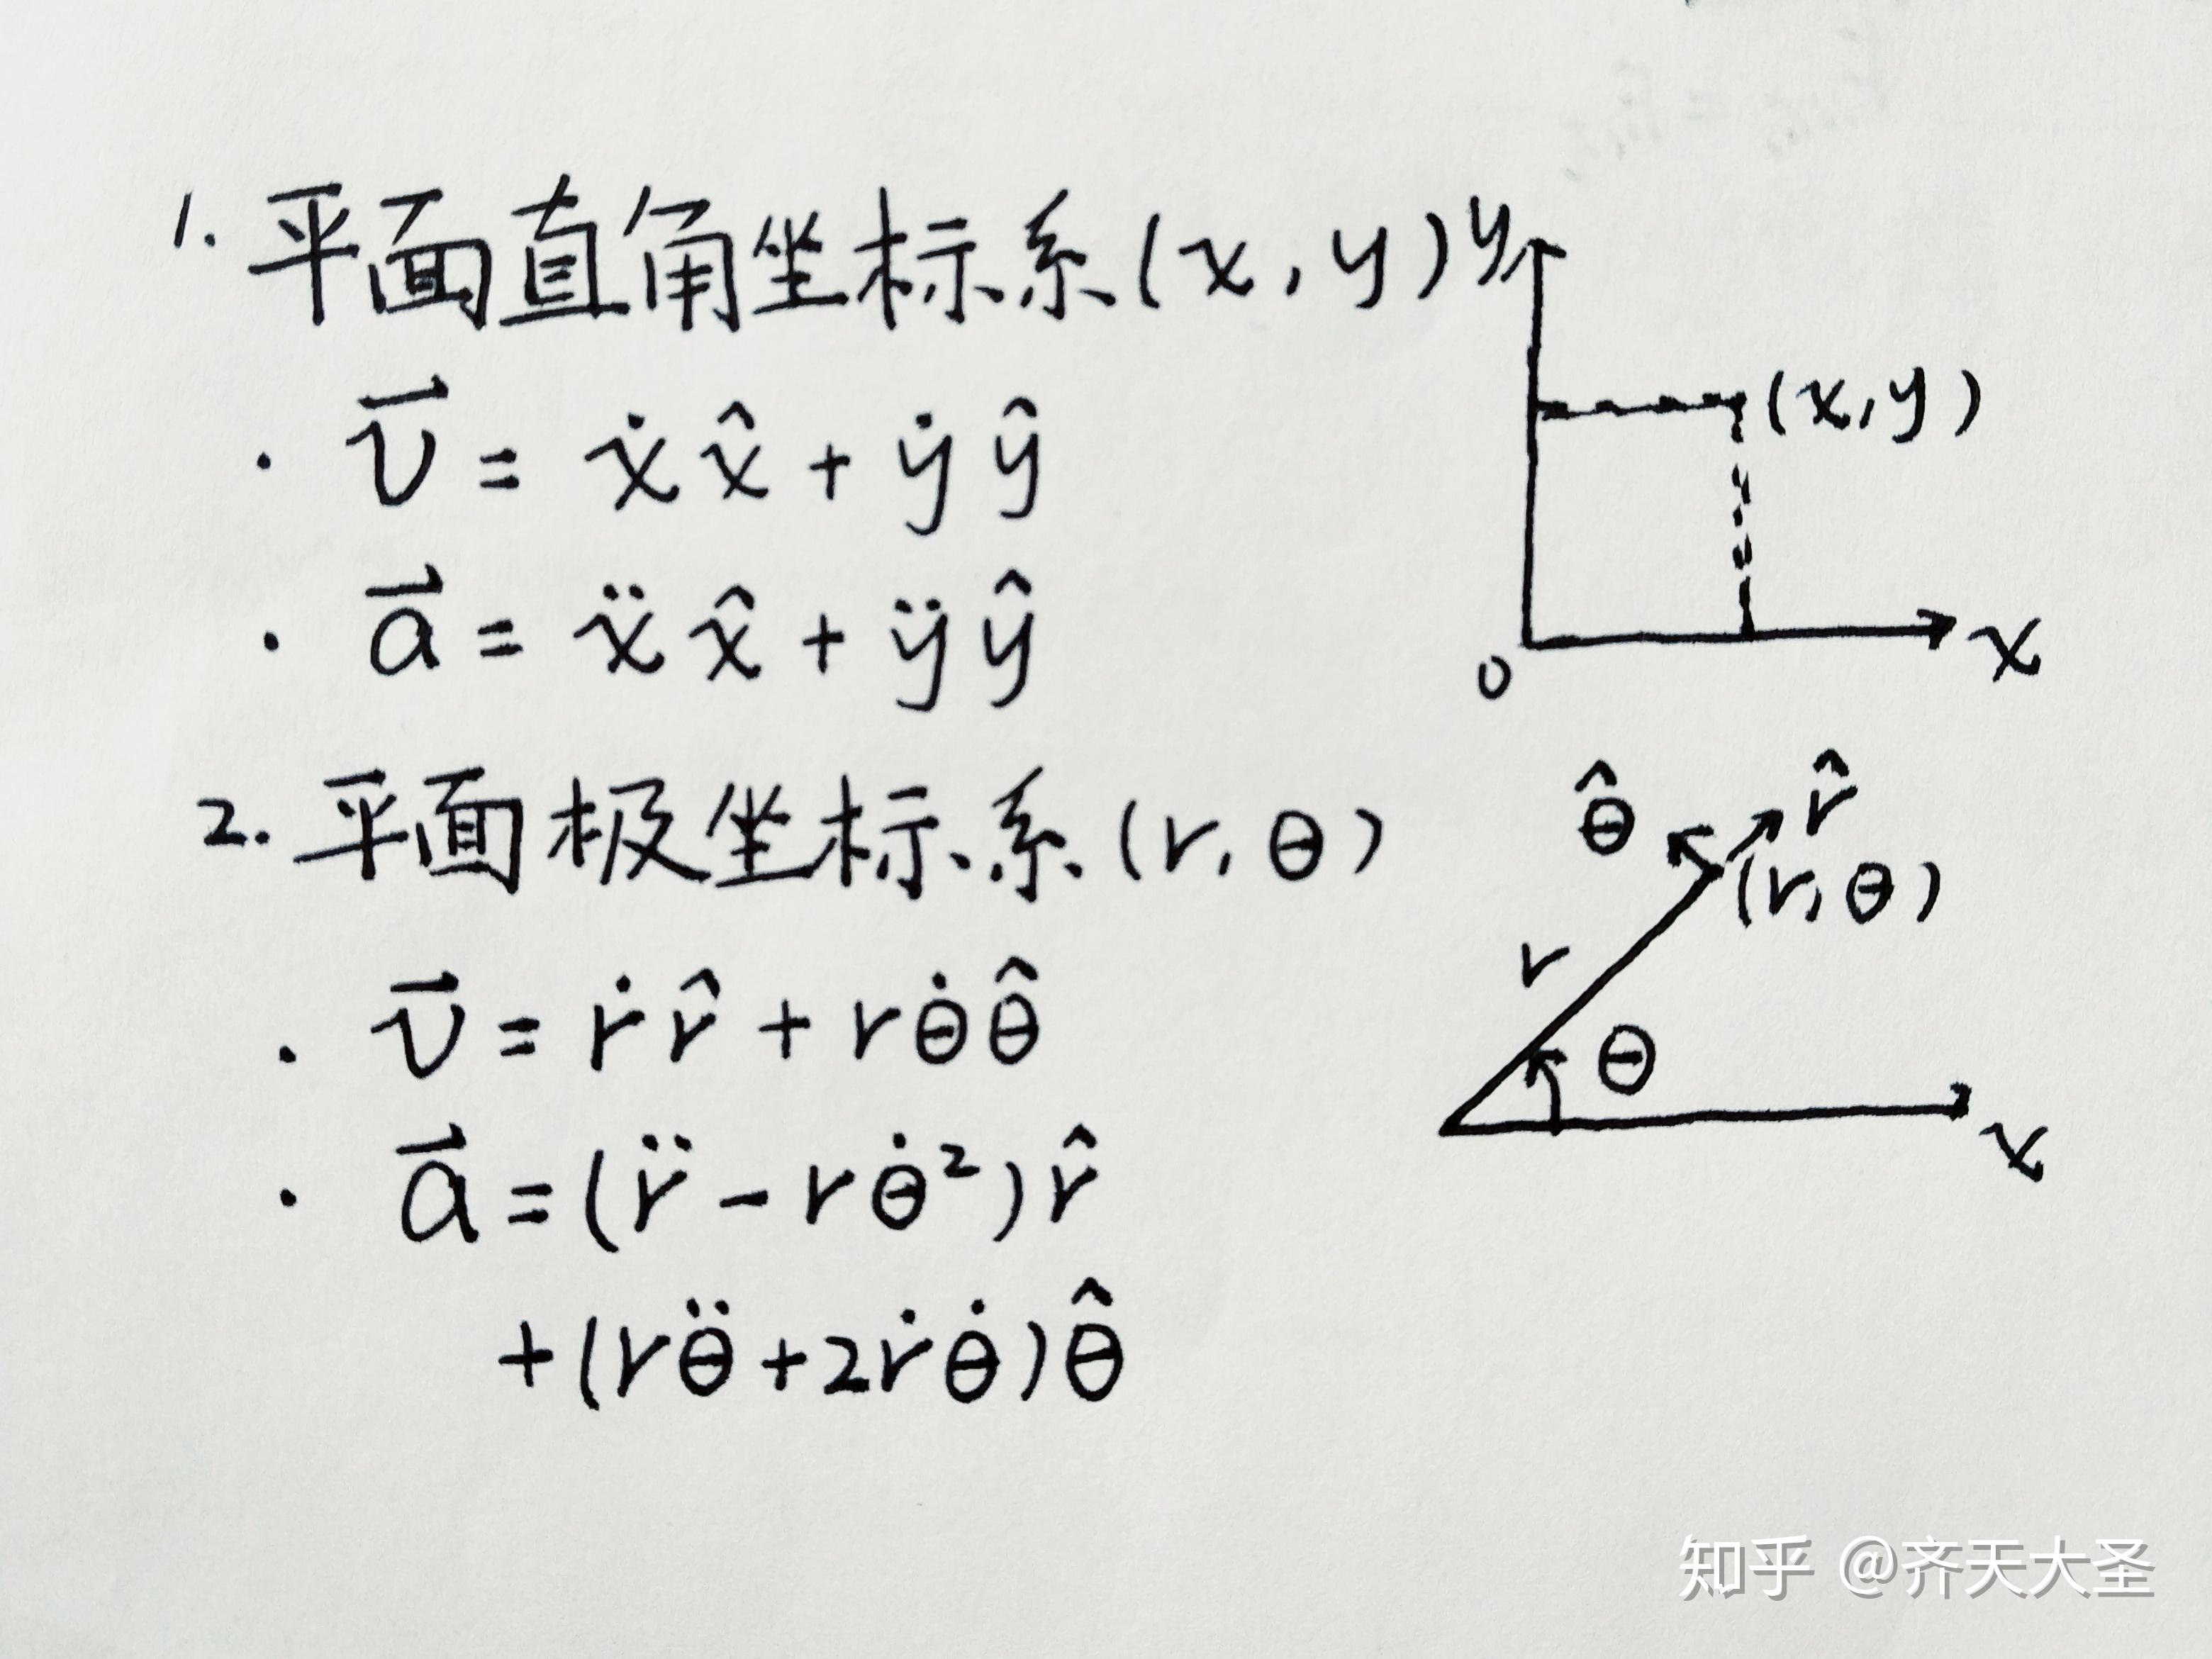 1. 平面直角坐标系(x, y)
· v⃗ = ẋ x̂ + ẏ ŷ
· a⃗ = ẍ x̂ + ÿ ŷ
y
(x, y)
0
x
2. 平面极坐标系(r, θ)
· v⃗ = ṙ r̂ + r θ̇ θ̂
· a⃗ = (r̈ - r θ̇²) r̂
+ (r θ̈ + 2 ṙ θ̇) θ̂
θ̂
r̂
(r, θ)
r
θ
x
知乎 @齐天大圣